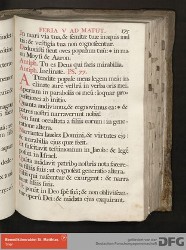 FERIA V AD MATUT. 175
In mari via tua, & semitæ tuæ in aquis mul
tis: & vestigia tua non cognoscentur.
Deduxisti sicut oves populum tuum: in ma
nu Moysi & Aaron.
Antiph. Tu es Deus qui facis mirabilia.
Antiph. Inclinate. PS. 77.
Attendite popule meus legem meam: in
clinate aurem vestram in verba oris mei.
Aperiam in parabolis os meum: loquar pro
positiones ab initio.
Quanta audivimus, & cognovimus ea: &
patres nostri narraverunt nobis.
Non sunt occultata a filiis eorum: in gene
ratione altera.
Narrantes laudes Domini, & virtutes ejus:
& mirabilia ejus quæ fecit.
Et suscitavit testimonium in Jacob: & legem
posuit in Israel.
Quanta mandavit patribus nostris nota facere
filiis suis: ut cognoscat generatio altera.
Filii qui nascentur, & exurgent: & narra
bunt filiis suis.
Ut ponant in Deo spem suam: & non obliviscan
tur operum Dei: & mandata ejus exquirant.
gefördert von der
DFG